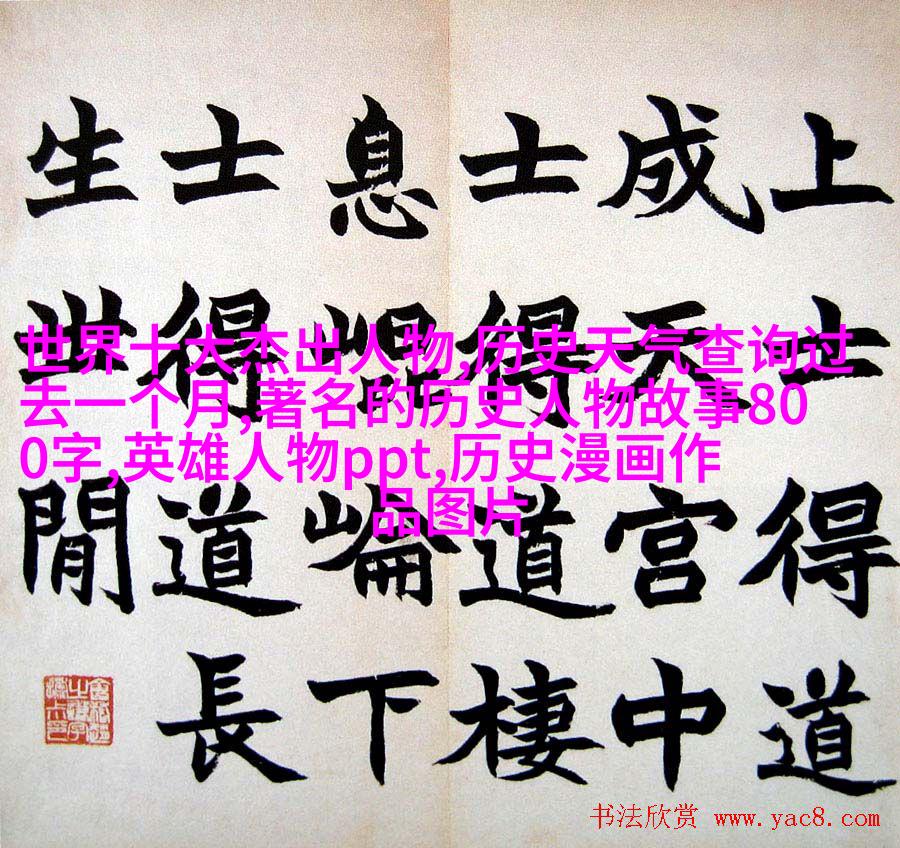 上士得道
成天宮中
士得道棲
息崐崘下
士得道長
生世閒
世界十大杰出人物,历史天气查询过
去一个月,著名的历史人物故事80
0字,英雄人物ppt,历史漫画作
品图片
书法欣赏 www.yac8.com